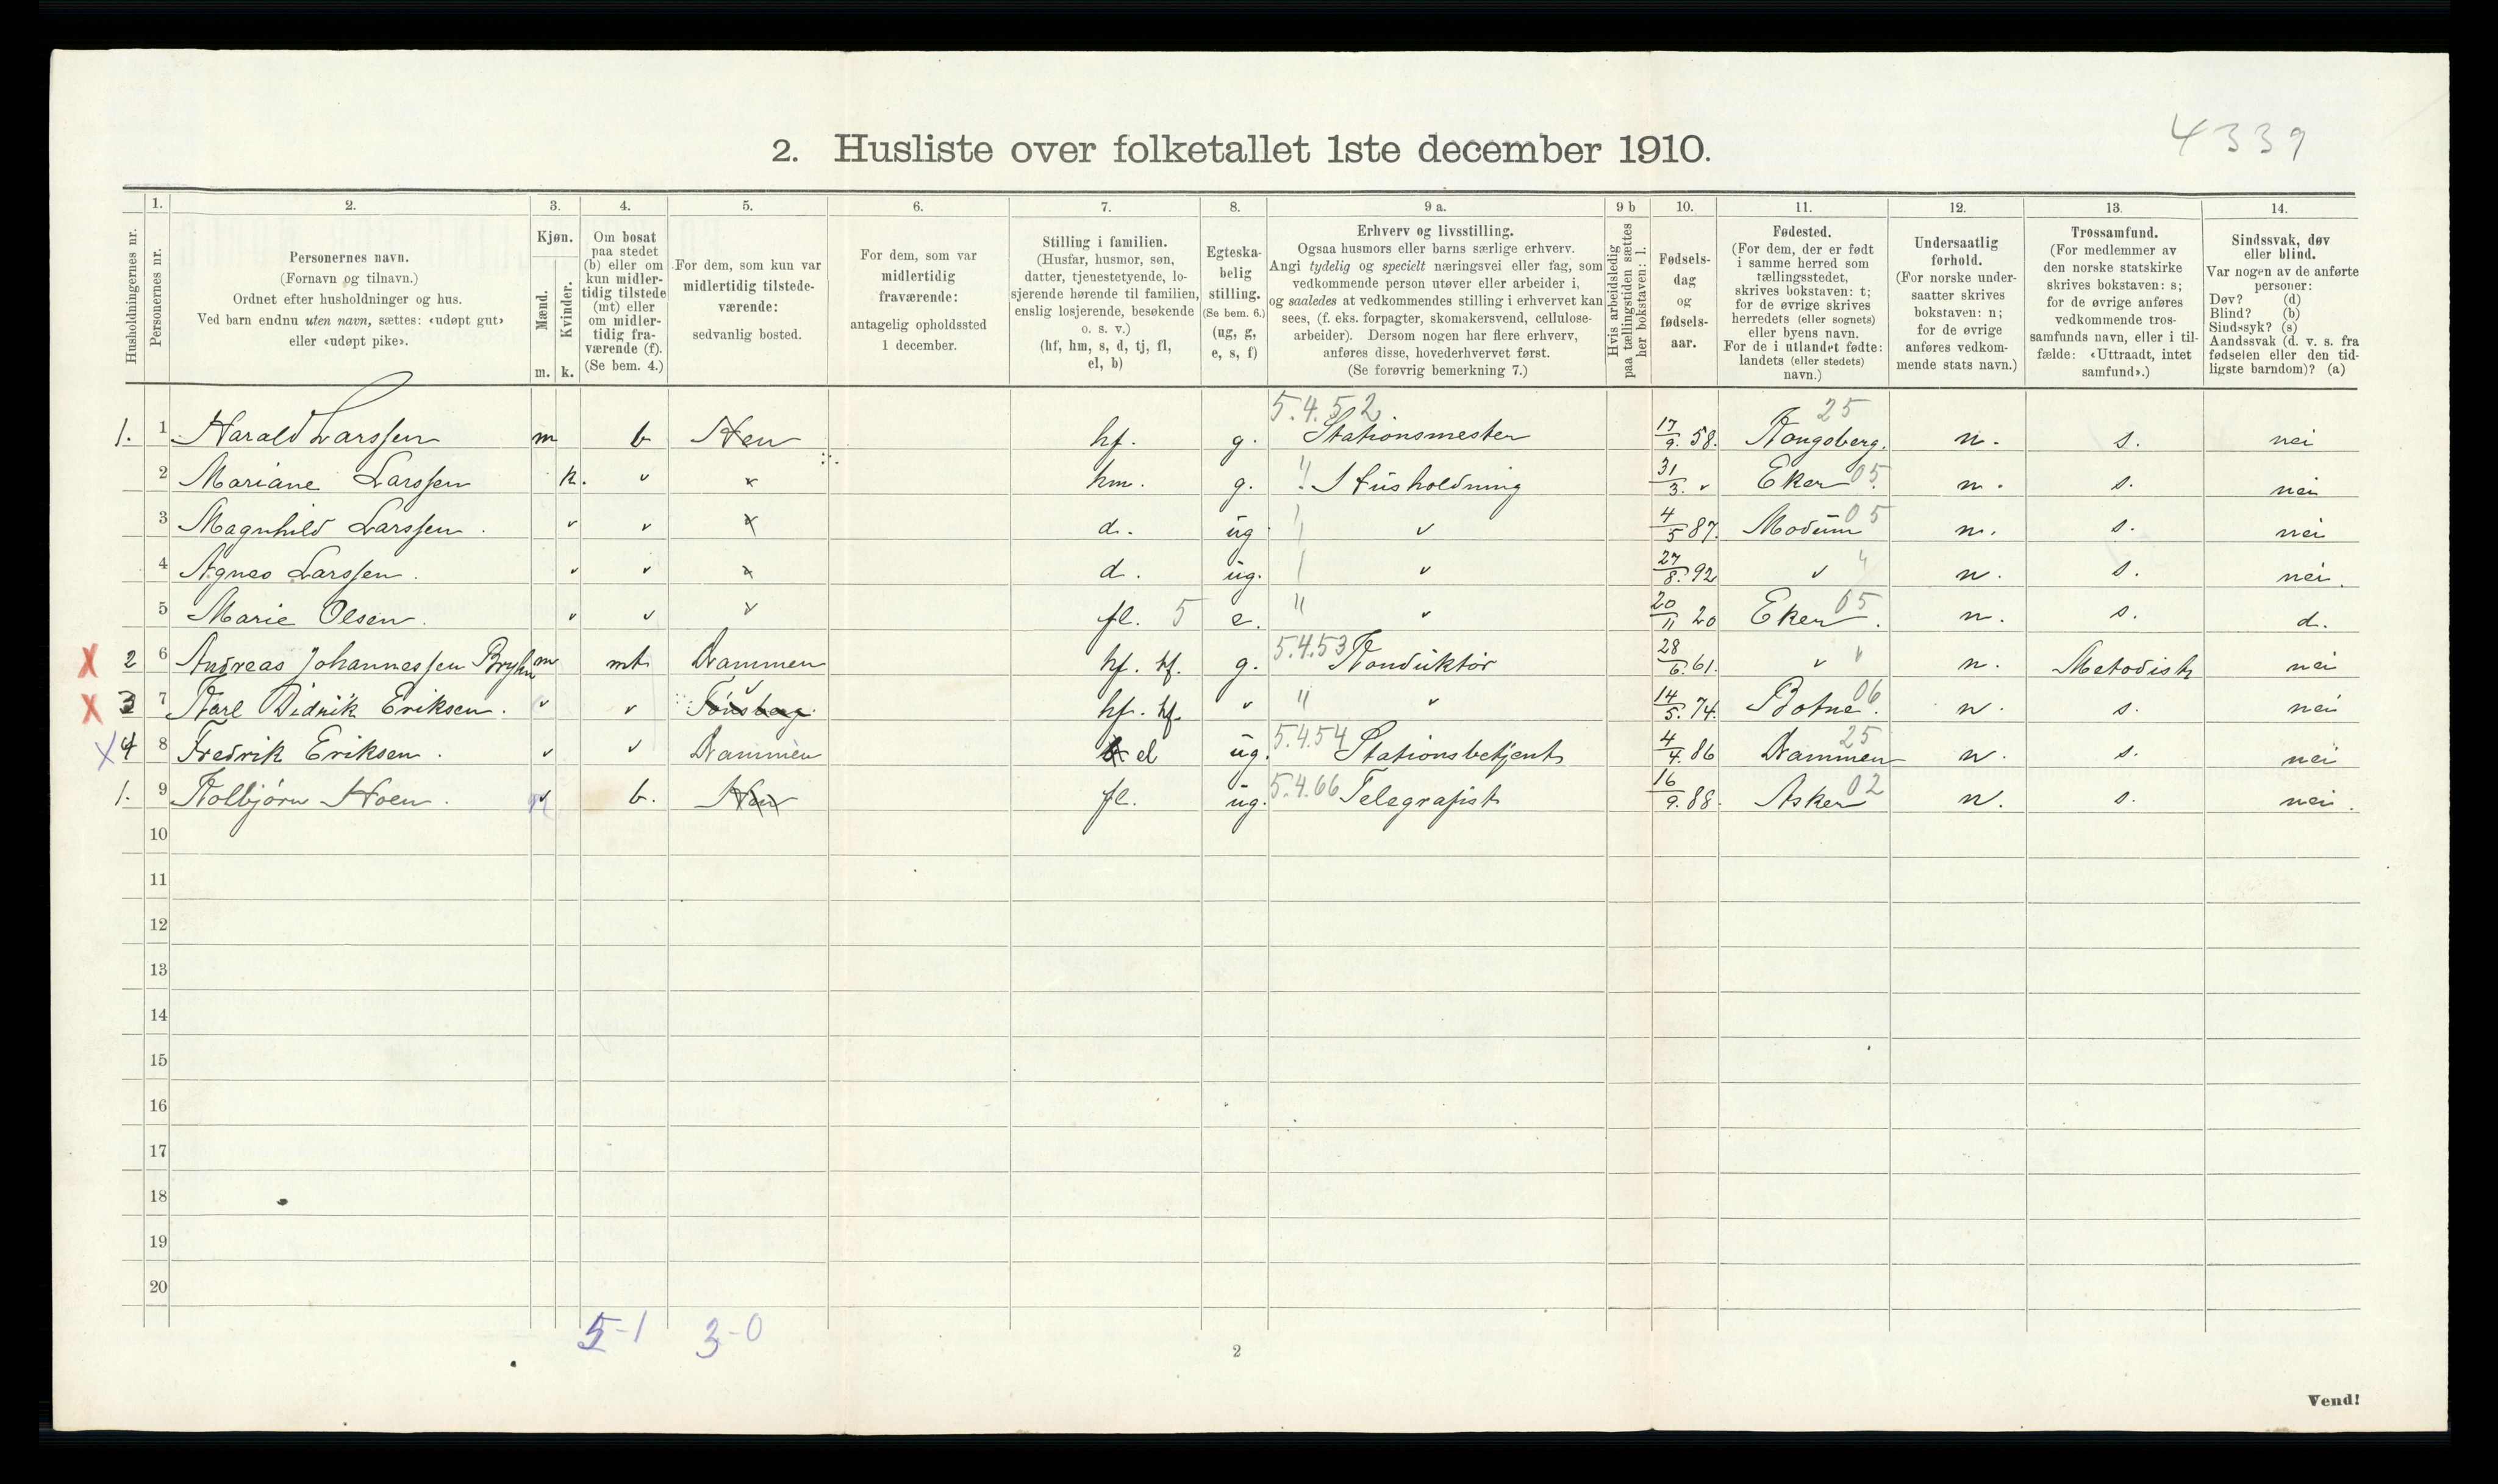 4339
2. Husliste over folketallet 1ste december 1910.
Husholdningernes nr.
1. Personernes nr.
2. Personernes navn.
(Fornavn og tilnavn.)
Ordnet efter husholdninger og hus.
Ved barn endnu uten navn, sættes: «udøpt gut»
eller «udøpt pike».
3. Kjøn.
Mænd. Kvinder.
m. k.
4. Om bosat
paa stedet
(b) eller om
kun midler-
tidig tilstede
(mt) eller
om midler-
tidig fra-
værende (f).
(Se bem. 4.)
5. For dem, som kun var
midlertidig tilstede-
værende:
sedvanlig bosted.
6. For dem, som var
midlertidig
fraværende:
antagelig opholdssted
1 december.
7. Stilling i familien.
(Husfar, husmor, søn,
datter, tjenestetyende, lo-
sjerende hørende til familien,
enslig losjerende, besøkende
o. s. v.)
(hf, hm, s, d, tj, fl,
el, b)
8. Egteska-
belig
stilling.
(Se bem. 6.)
(ug, g,
e, s, f)
9 a. Erhverv og livsstilling.
Ogsaa husmors eller barns særlige erhverv.
Angi tydelig og specielt næringsvei eller fag, som
vedkommende person utøver eller arbeider i,
og saaledes at vedkommendes stilling i erhvervet kan
sees, (f. eks. forpagter, skomakersvend, cellulose-
arbeider). Dersom nogen har flere erhverv,
anføres disse, hovederhvervet først.
(Se forøvrig bemerkning 7.)
9 b Hvis arbeidsledig
paa tællingstiden sættes
her bokstaven: l.
10. Fødsels-
dag
og
fødsels-
aar.
11. Fødested.
(For dem, der er født
i samme herred som
tællingsstedet,
skrives bokstaven: t;
for de øvrige skrives
herredets (eller sognets)
eller byens navn.
For de i utlandet fødte:
landets (eller stedets)
navn.)
12. Undersaatlig
forhold.
(For norske under-
saatter skrives
bokstaven: n;
for de øvrige
anføres vedkom-
mende stats navn.)
13. Trossamfund.
(For medlemmer av
den norske statskirke
skrives bokstaven: s;
for de øvrige anføres
vedkommende tros-
samfunds navn, eller i til-
fælde: «Uttraadt, intet
samfund».)
14. Sindssvak, døv
eller blind.
Var nogen av de anførte
personer:
Døv? (d)
Blind? (b)
Sindssyk? (s)
Aandssvak (d. v. s. fra
fødselen eller den tid-
ligste barndom)? (a)
5.4.52 25
1. 1 Harald Larssen m b Hen hf. g. Stationsmester 17/9. 58. Kongsberg. n. s. nei
2 Mariane Larssen k. v v hm. g. " Husholdning 31/3. v Eker 05. n. s. nei
3 Magnhild Larssen. v v v d. ug v 4/5 87. Modum 05 n. s. nei
4 Agnes Larssen. v v v d. ug. v 27/8. 92 v " n. s. nei.
5 Marie Olsen. v v v fl. 5 e. " v 20/11 20 Eker 05. n. s. d.
X 2 6 Andreas Johannessen Bryhn m mt Drammen hf. hf. g. 5.4.53 Konduktør 28/6. 61. v " n. Metodist nei
X 3 7 Karl Didrik Eriksen. v v Tønsberg v hf. hf. v " v 14/5. 74. Botne 06. n. s. nei
X 4 8 Fredrik Eriksen. v v Drammen b el ug. 5.4.54 Stationsbetjent 4/4. 86 Drammen 25 n. s. nei
1. 9 Kolbjørn Hoen. v b. Hen fl. ug. 5.4.66 Telegrafist 16/9. 88. Asker 02 n. s. nei.
10
11
12
13
14
15
16
17
18
19
20
5-1 3-0
2
Vend!